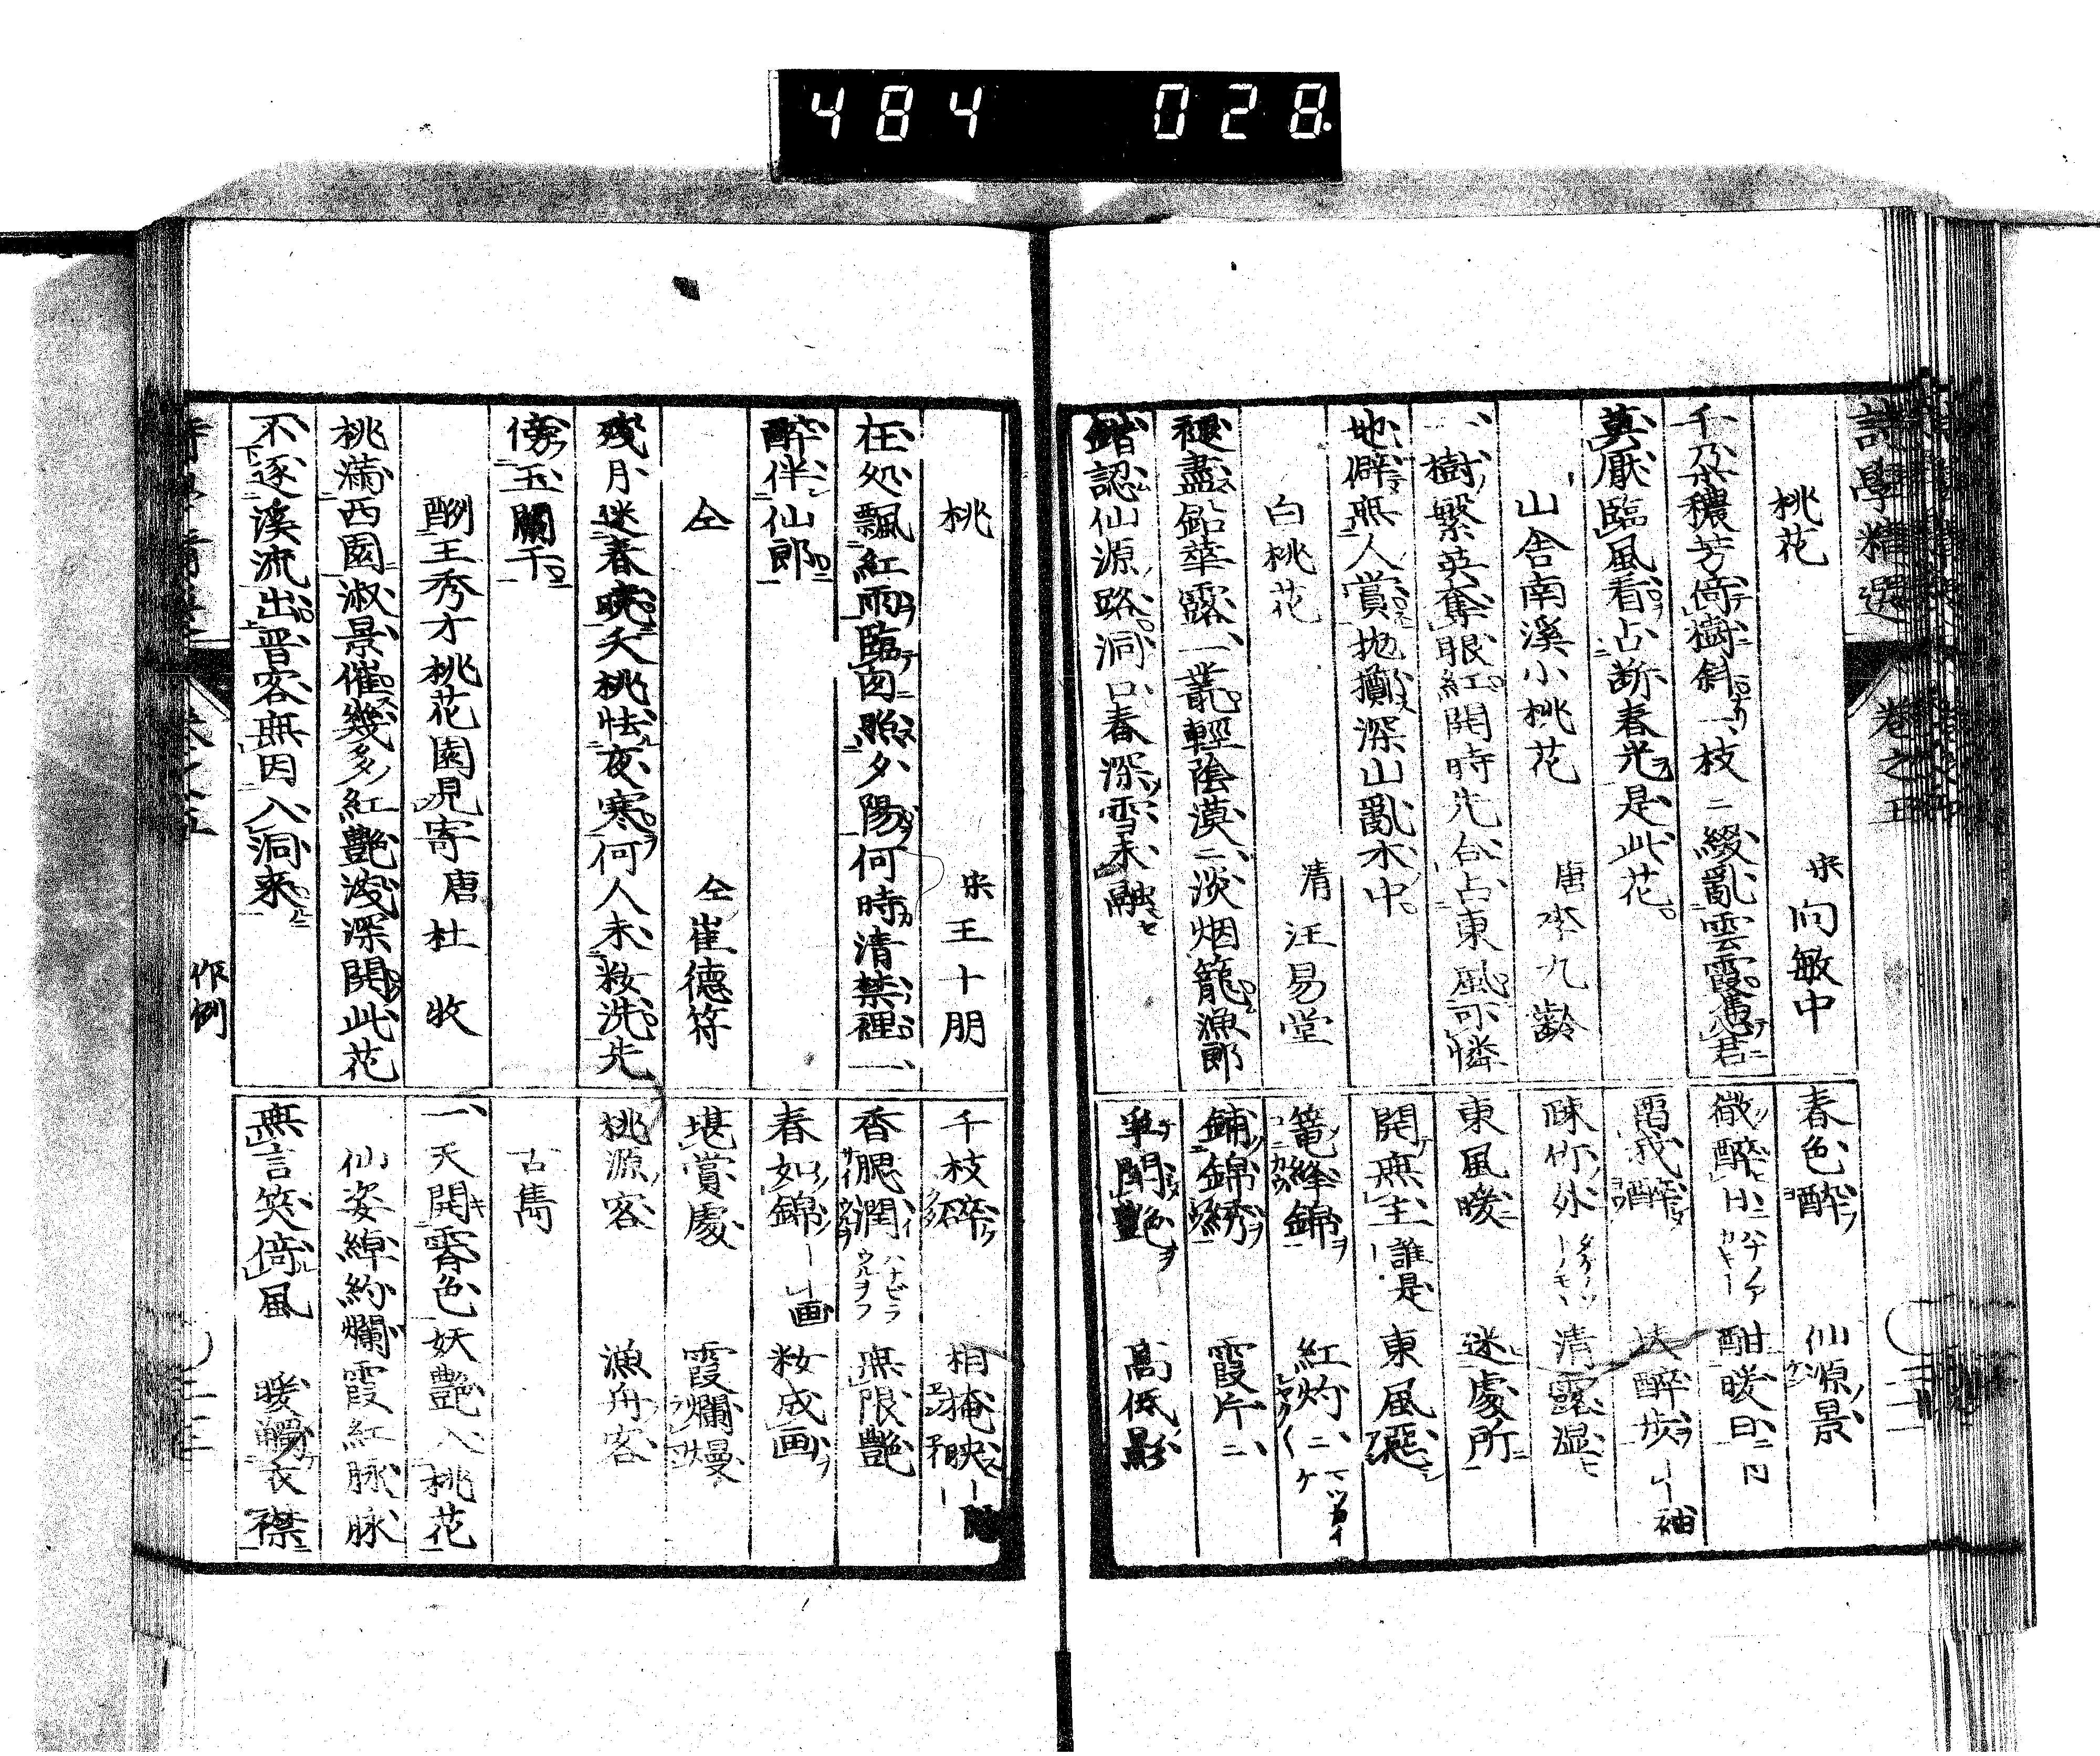 484 028
詩學精選 卷之五
桃花 宋 向敏中
千朶穠芳倚樹斜一枝ニ綴亂雲霞憑君
莫厭臨風看占断春光是此花
山舎南溪小桃花 唐 李九齡
一樹繁英奪眼紅開時先合占東風可憐
地僻無人賞抛擲深山亂木中
白桃花 清 汪易堂
褪盡鉛華露一叢輕陰漠ニ淡烟籠漁郎
錯認仙源路洞口春深雪未融
春色酔 仙源景
微酔日 酣暖日
留我酔 扶酔歩
疎竹外 清露湿
東風暖 迷處所
開無主 誰是 東風惡
篭絳錦 紅灼ニ
鋪錦繡 霞片ニ
爭閙艶 高低影
桃 宋 王十朋
在処飄紅雨臨窗貽夕陽何時清禁裡一
酔伴仙郎
仝 仝 崔德符
殘月迷春暁夭桃怯夜寒何人未粧洗先
傍玉闌干
酬王秀才桃花園見寄 唐 杜 牧
桃滿西園淑景催幾多紅艶浅深開此花
不逐溪流出晋客無因入洞來
千枝碎 相掩映
香腮潤 ハナビラウルヲフ 無限艶
春如錦 画 粧成画
堪賞處 霞爛熳
桃源客 漁舟客
古雋
一天開霽色妖艶入桃花
仙姿綽約爛霞紅脉脉
無言笑倚風 暖觸衣襟
作例